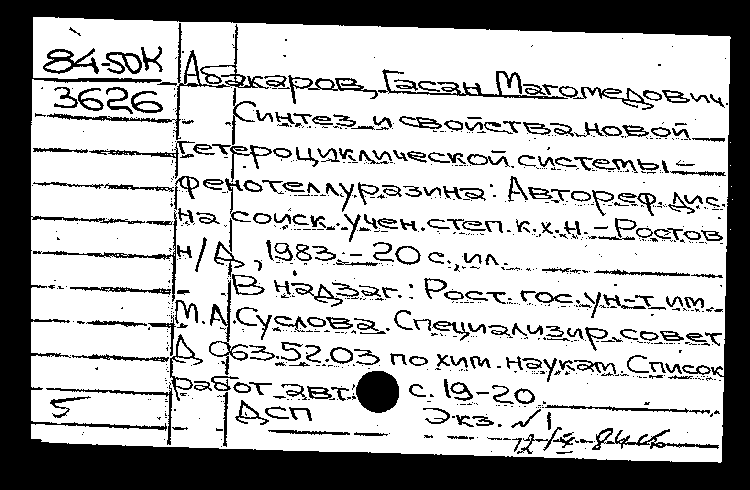 84-5DК Абакаров, Гасан Магомедович.
3626 Синтез и свойства новой
гетероциклической системы -
фенотеллуразина: Автореф. дис.
на соиск. учен. степ. к.х.н. - Ростов
н/Д, 1983. - 20 с., ил.
В надзаг.: Рост. гос. ун-т им.
М.А. Суслова. Специализир. совет
Д 063.52.03 по хим. наукам. Список
работ авт. с. 19-20.
5 ДСП Экз. №1